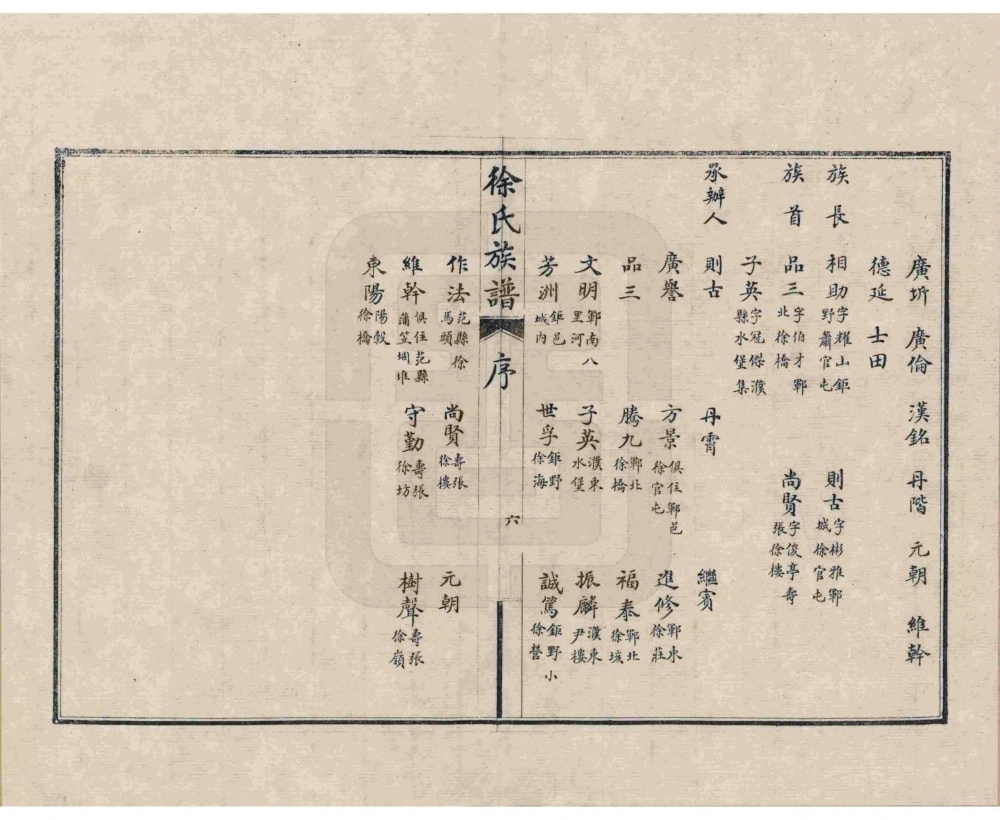 廣圻 廣倫 漢銘 丹階 元朝 維幹
德延 士田
族長 相助字耀山鉅野蕭官屯 則古字彬雅鄆城徐官屯
族首 品三字伯才鄆北徐橋 尚賢字俊亭壽張徐樓
子英字冠傑濮縣水堡集
承辦人 則古 丹霄 繼賓
廣譽 方景俱住鄆邑徐官屯 進修鄆東徐莊
品三 騰九鄆北徐橋 福泰鄆北徐垓
文明鄆南八里河 子英濮東水堡 振麟濮東尹樓
芳洲鉅邑城內 世孚鉅野徐海 誠篤鉅野小徐營
徐氏族譜 序 六
作法范縣徐馬頭 尚賢壽張徐樓 元朝
維幹俱住范縣蒲笠堌堆 守勤壽張徐坊 樹聲壽張徐嶺
東陽陽穀徐橋